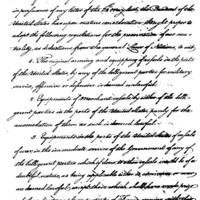 in pursuance of any letter of the Foreign Ministers, the President of the
United States has upon mature consideration thought proper to
adopt the following regulations for the preservation of our neu-
trality, as deductions from the general Laws of Nations, to wit,
1. The original arming and equipping of vessels in the ports of
the United States by any of the belligerent parties for military service,
offensive or defensive is deemed unlawful.
2. Equipments of merchant vessels by either of the bellige-
rent parties in the ports of the United States purely for the
accommodation of them as such is deemed lawful.
3. Equipments in the ports of the United States of vessels
of war in the immediate service of the Government of any of
the belligerent parties which if done to other vessels would be of a
doubtful nature, as being applicable either to commerce or war,
are deemed lawful; except those which shall have made prize